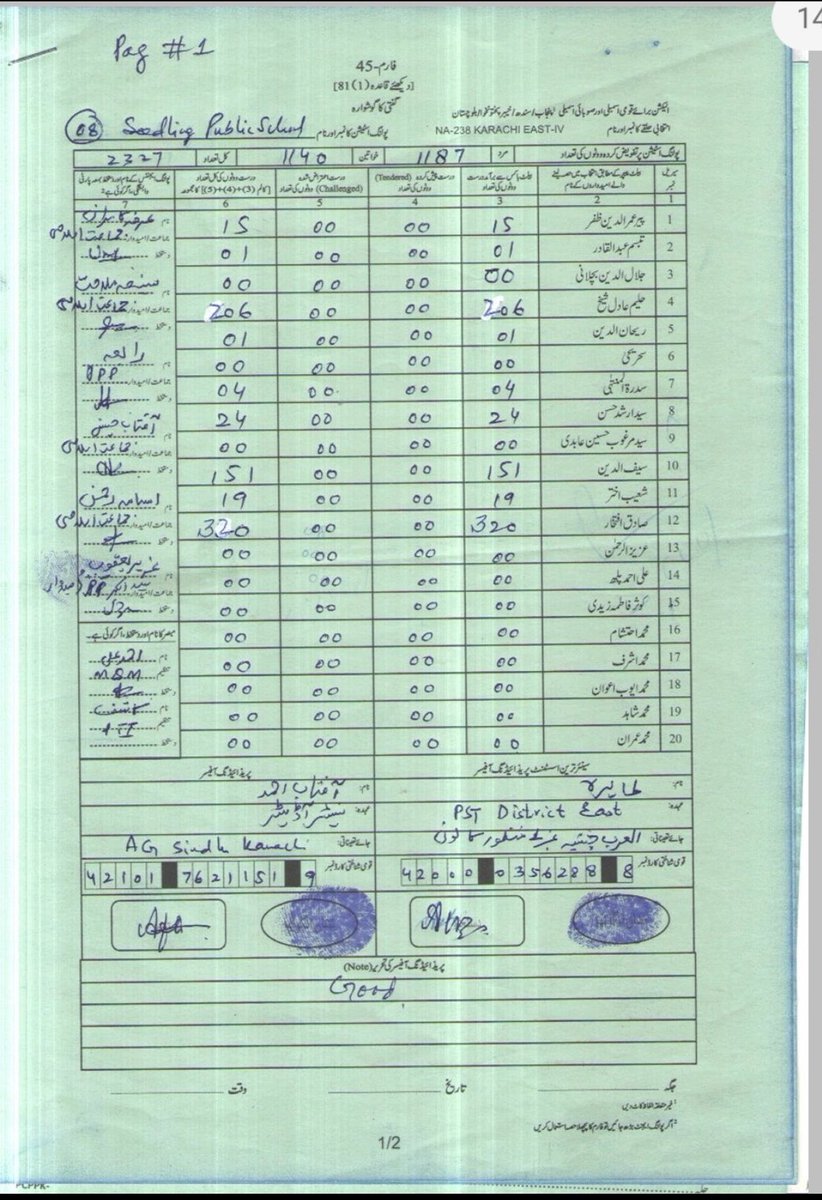 14
Pag #1
فارم-45
[دیکھئے قاعدہ (1)81]
گنتی کا گوشوارہ
الیکشن برائے قومی اسمبلی اور صوبائی اسمبلی پنجاب/سندھ/خیبر پختونخوا/بلوچستان
انتخابی حلقے کا نمبر اور نام NA-238 KARACHI EAST-IV پولنگ اسٹیشن کا نمبر اور نام 08 Seedling Public School
پولنگ اسٹیشن پر تفویض کردہ ووٹوں کی تعداد مرد 1187 خواتین 1140 کل تعداد 2327
سیریل نمبر
درست پیش کردہ (Tendered) ووٹوں کی تعداد
درست اعتراض شدہ (Challenged) ووٹوں کی تعداد
درست ووٹوں کی کل تعداد [کالم (3)+(4)+(5) کا مجموعہ]
1 2 3 4 5 6 7
1 پیر عمر الدین ظفر 15 00 00 15
2 تبسم عبدالقادر 01 00 00 01
3 جلال الدین بچلانی 00 00 00 00
4 حلیم عادل شیخ 206 00 00 206
5 ریحان الدین 01 00 00 01
6 00 00 00 00
7 سدرۃ المنتہیٰ 04 00 00 04
8 سید ارشد حسن 24 00 00 24
9 سید مرغوب حسین عابدی 00 00 00 00
10 سیف الدین 151 00 00 151
11 شعیب اختر 19 00 00 19
12 صادق افتخار 320 00 00 320
13 عزیز الرحمٰن 00 00 00 00
14 علی احمد پلھ 00 00 00 00
15 کوثر فاطمہ زیدی 00 00 00 00
16 محمد احتشام 00 00 00 00
17 محمد اشرف 00 00 00 00
18 محمد ایوب اعوان 00 00 00 00
19 محمد شاہد 00 00 00 00
20 محمد عمران 00 00 00 00
نام
جماعت اسلامی
دستخط
جماعت اسلامی
رابعہ
PPP
آفتاب حسین
جماعت اسلامی
اسامہ
جماعت اسلامی
PP
مبصر کا نام اور دستخط، اگر کوئی ہے۔
نام احمد علی
تنظیم
دستخط
نام کاشف
تنظیم
دستخط
سینئر ترین اسسٹنٹ پریذائیڈنگ آفیسر پریذائیڈنگ آفیسر
نام: طاہرہ نام: آفتاب احمد
عہدہ: PST District East عہدہ: سینئر آڈیٹر
جائے تعیناتی: جائے تعیناتی: AG Sindh Karachi
قومی شناختی کارڈ نمبر 42000 0356288 8 قومی شناختی کارڈ نمبر 42101 7621151 9
پریذائیڈنگ آفیسر کی تحریر (Note)
Good
جگہ تاریخ وقت
1 غیر متعلقہ الفاظ کاٹ دیں
2 اگر پولنگ ایجنٹ بڑھ جائیں تو فارم کا پچھلا حصہ استعمال کریں
1/2
PCPPK-